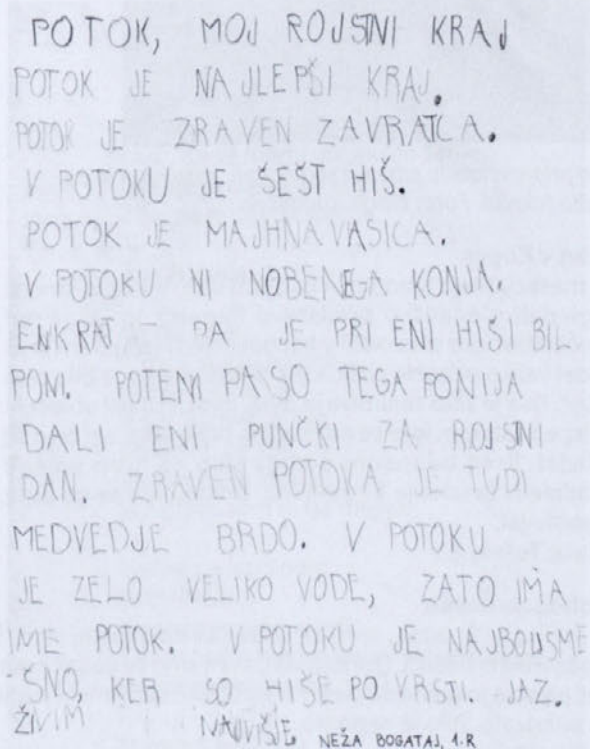 POTOK, MOJ ROJSTNI KRAJ
POTOK JE NAJLEPŠI KRAJ.
POTOK JE ZRAVEN ZAVRATCA.
V POTOKU JE ŠEST HIŠ.
POTOK JE MAJHNA VASICA.
V POTOKU NI NOBENEGA KONJA.
ENKRAT – PA JE PRI ENI HIŠI BIL
PONI. POTEM PA SO TEGA PONIJA
DALI ENI PUNČKI ZA ROJSTNI
DAN. ZRAVEN POTOKA JE TUDI
MEDVEDJE BRDO. V POTOKU
JE ZELO VELIKO VODE, ZATO IMA
IME POTOK. V POTOKU JE NAJBOLJSME
SNO, KER SO HIŠE PO VRSTI. JAZ.
ŽIVIM NAJVIŠJE
NEŽA BOGATAJ, 1.R